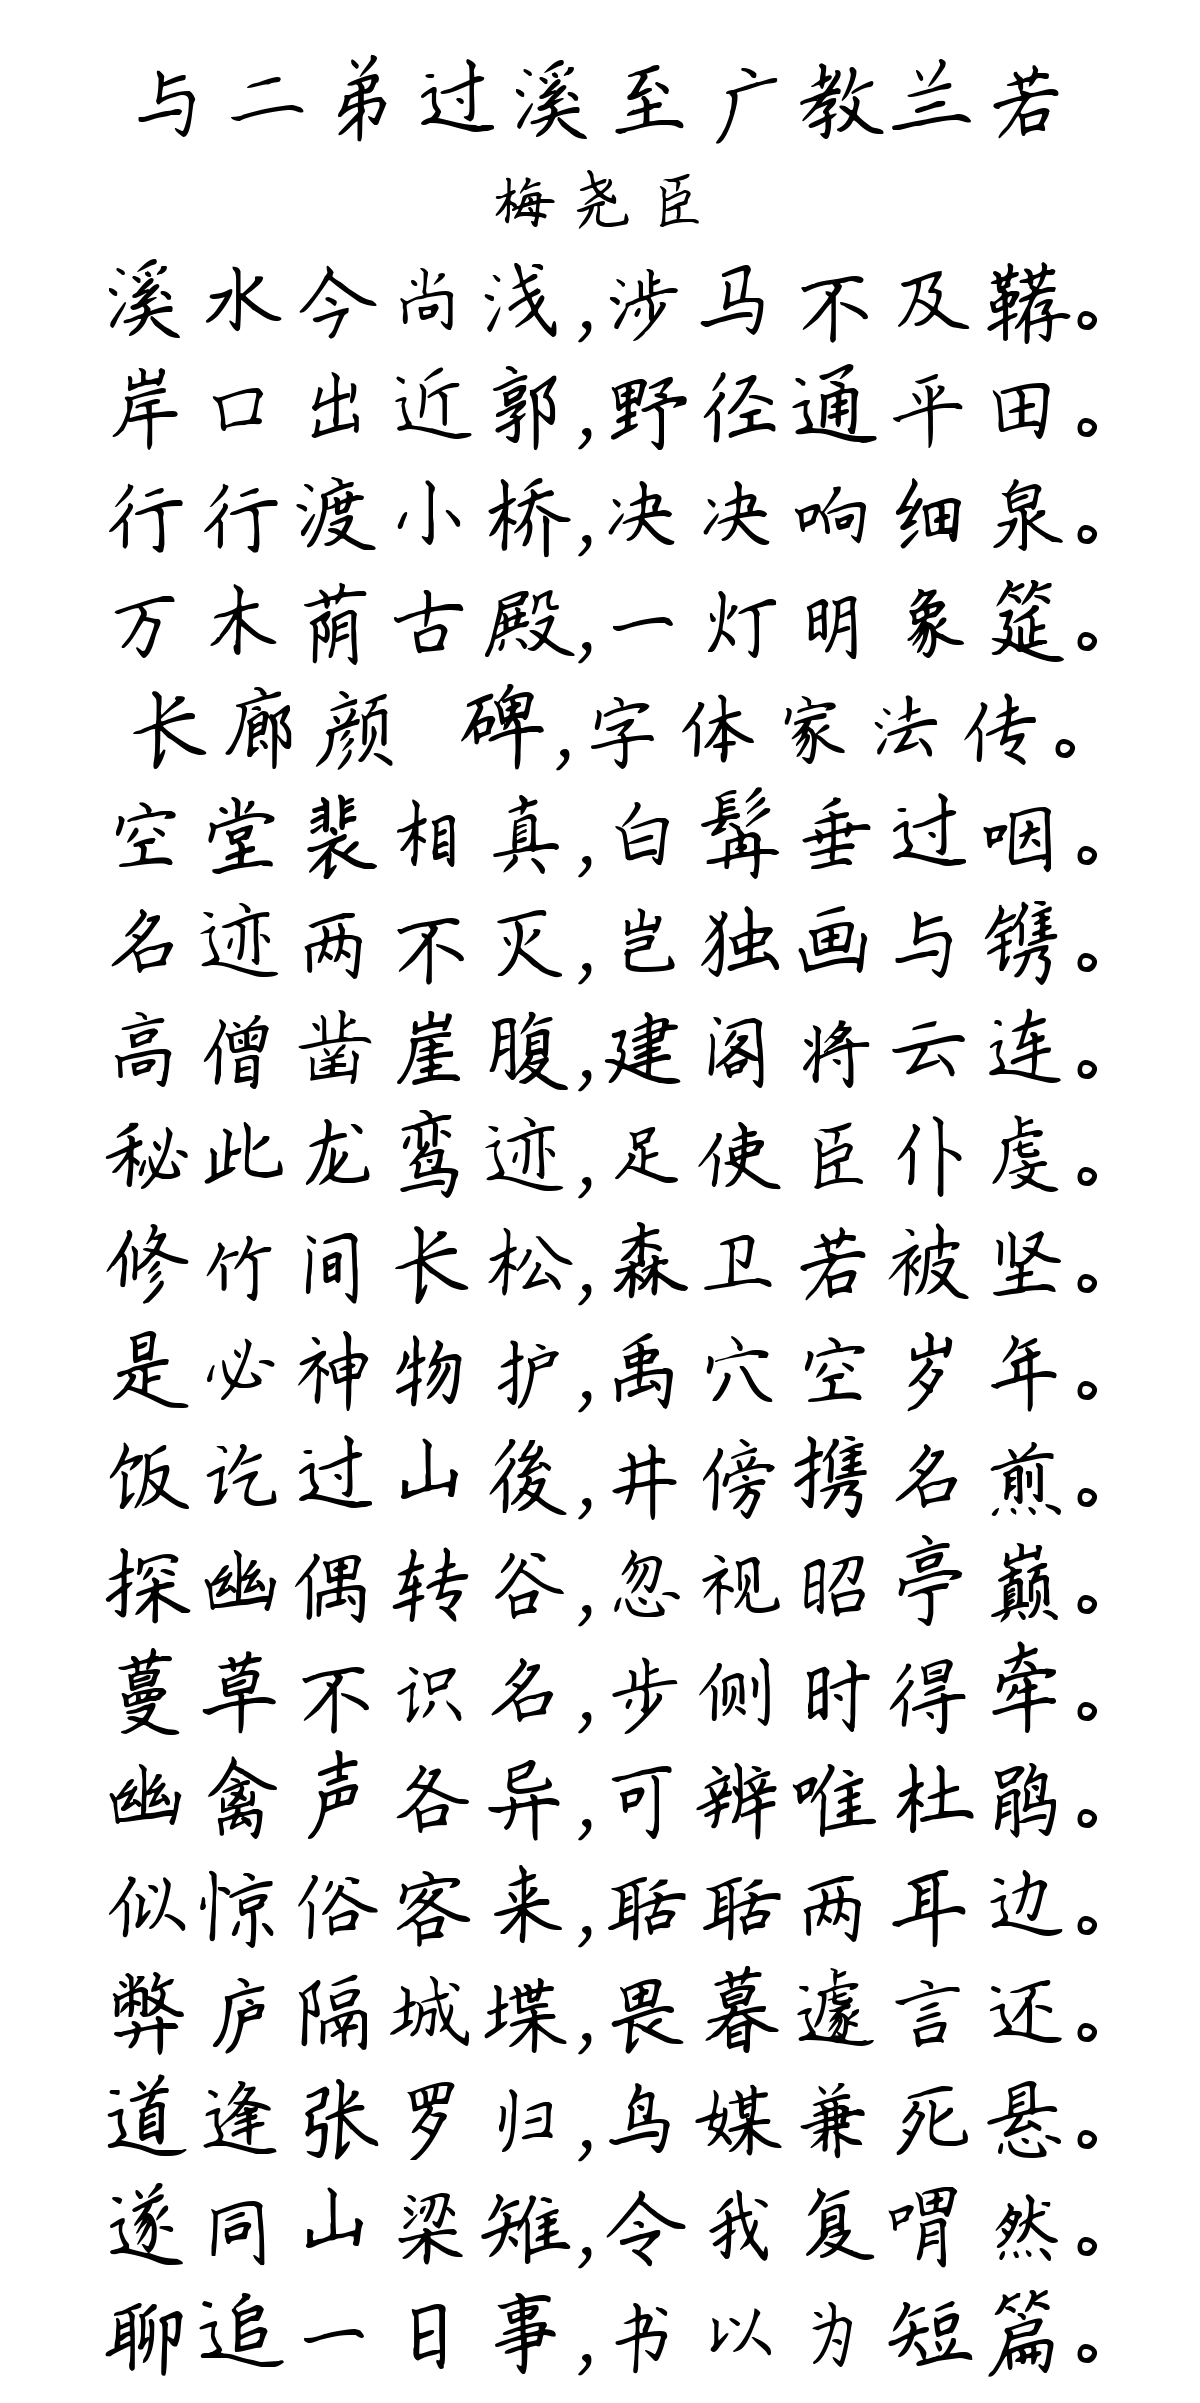 与二弟过溪至广教兰若
梅尧臣
溪水今尚浅,涉马不及鞯。
岸口出近郭,野径通平田。
行行渡小桥,决决响细泉。
万木荫古殿,一灯明象筵。
长廊颜 碑,字体家法传。
空堂裴相真,白髯垂过咽。
名迹两不灭,岂独画与镌。
高僧凿崖腹,建阁将云连。
秘此龙鸾迹,足使臣仆虔。
修竹间长松,森卫若被坚。
是必神物护,禹穴空岁年。
饭讫过山後,井傍携名煎。
探幽偶转谷,忽视昭亭巅。
蔓草不识名,步侧时得牵。
幽禽声各异,可辨唯杜鹃。
似惊俗客来,聒聒两耳边。
弊庐隔城堞,畏暮遽言还。
道逢张罗归,鸟媒兼死悬。
遂同山梁雉,令我复喟然。
聊追一日事,书以为短篇。